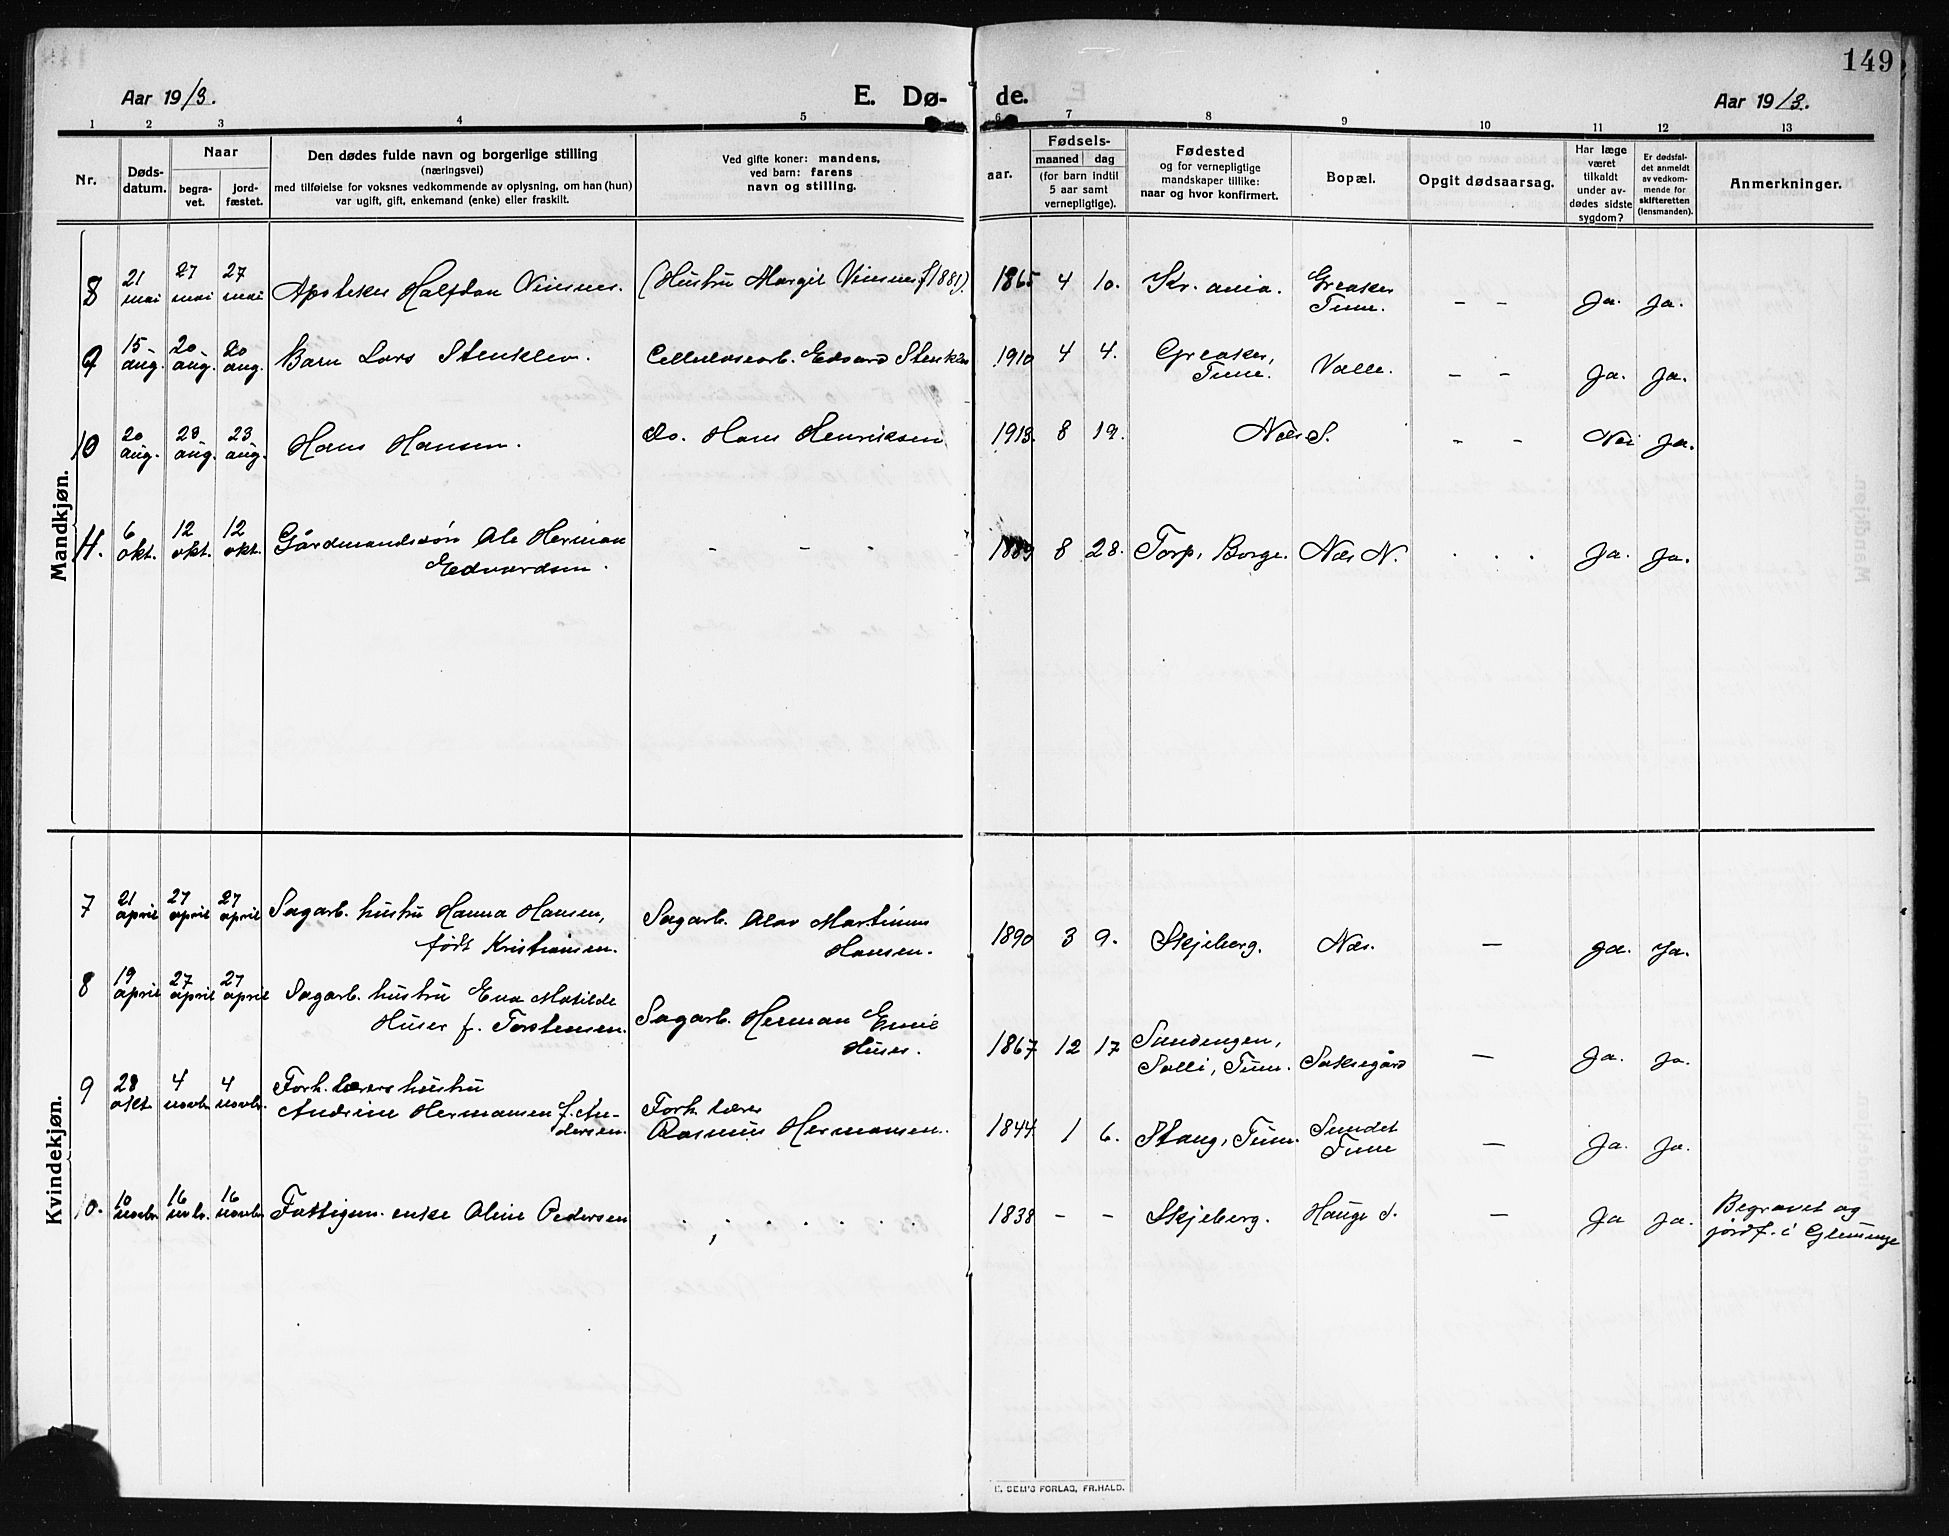 149
Aar 1913. E. Dø- de. Aar 1913.
1 2 3 4 5 6 7 8 9 10 11 12 13
Nr.
Døds-
datum.
Naar
begra-
vet.
jord-
fæstet.
Den dødes fulde navn og borgerlige stilling
(næringsvei)
med tilføielse for voksnes vedkommende av oplysning, om han (hun)
var ugift, gift, enkemand (enke) eller fraskilt.
Ved gifte koner: mandens,
ved barn: farens
navn og stilling.
aar.
Fødsels-
maaned dag
(for barn indtil
5 aar samt
vernepligtige).
Fødested
og for vernepligtige
mandskaper tillike:
naar og hvor konfirmert.
Bopæl.
Opgit dødsaarsag.
Har læge
været
tilkaldt
under av-
dødes sidste
sygdom?
Er dødsfal-
det anmeldt
av vedkom-
mende for
skifteretten
(lensmanden).
Anmerkninger.
Mandkjøn.
8 21 mai 27 mai 27 mai Apoteker Halfdan Vinsnes. (Hustru Margit Vinsnes f 1881). 1865 4 10. Kr.ania. Greaker Tune. – – Ja. Ja.
9 15 aug. 20 aug. 20 aug. Barn Lars Stenklev. Cellulosearb. Edvard Stenklev 1910 4 4. Greaker, Tune. Valle. – – Ja. Ja.
10 20 aug. 23 aug. 23 aug. Hans Hansen. do. Hans Henriksen 1913. 8 19. Næs S. – – Nei Ja.
11. 6 okt. 12 okt. 12 okt. Gårdmandssøn Ole Herman
Edvardsen. - - - 1889 8 28. Torp, Borge. Næs N. . . . Ja. Ja.
Kvindekjøn.
7 21 april 27 april 27 april Sagarb. hustru Hanna Hansen,
født Kristiansen. Sagarb. Olav Martinius
Hansen. 1890 3 9. Skjeberg. Næs. — Ja. Ja.
8 19 april 27 april 27 april Sagarb. hustru Eva Matilde
Huser f. Torstensen. Sagarb. Herman Emil
Huser. 1867 12 17 Sandengen,
Solli, Tune. Saksegård — Ja. Ja.
9 28 okt. 4 novbr 4 novbr. Forh. lærers hustru
Andrine Hermansen f. An-
dersen. Forh. lærer
Rasmus Hermansen. 1844 1 6. Stang, Tune. Sundet
Tune — Ja. Ja.
10. 10 novbr 16 novbr. 16 novbr Fattigun. enke Oline Pedersen . , . . . . 1838 – – Skjeberg. Hauge S. — Ja Ja. Begravet og
jordf. i Glemminge
E. SEM'S FORLAG, FR.HALD.